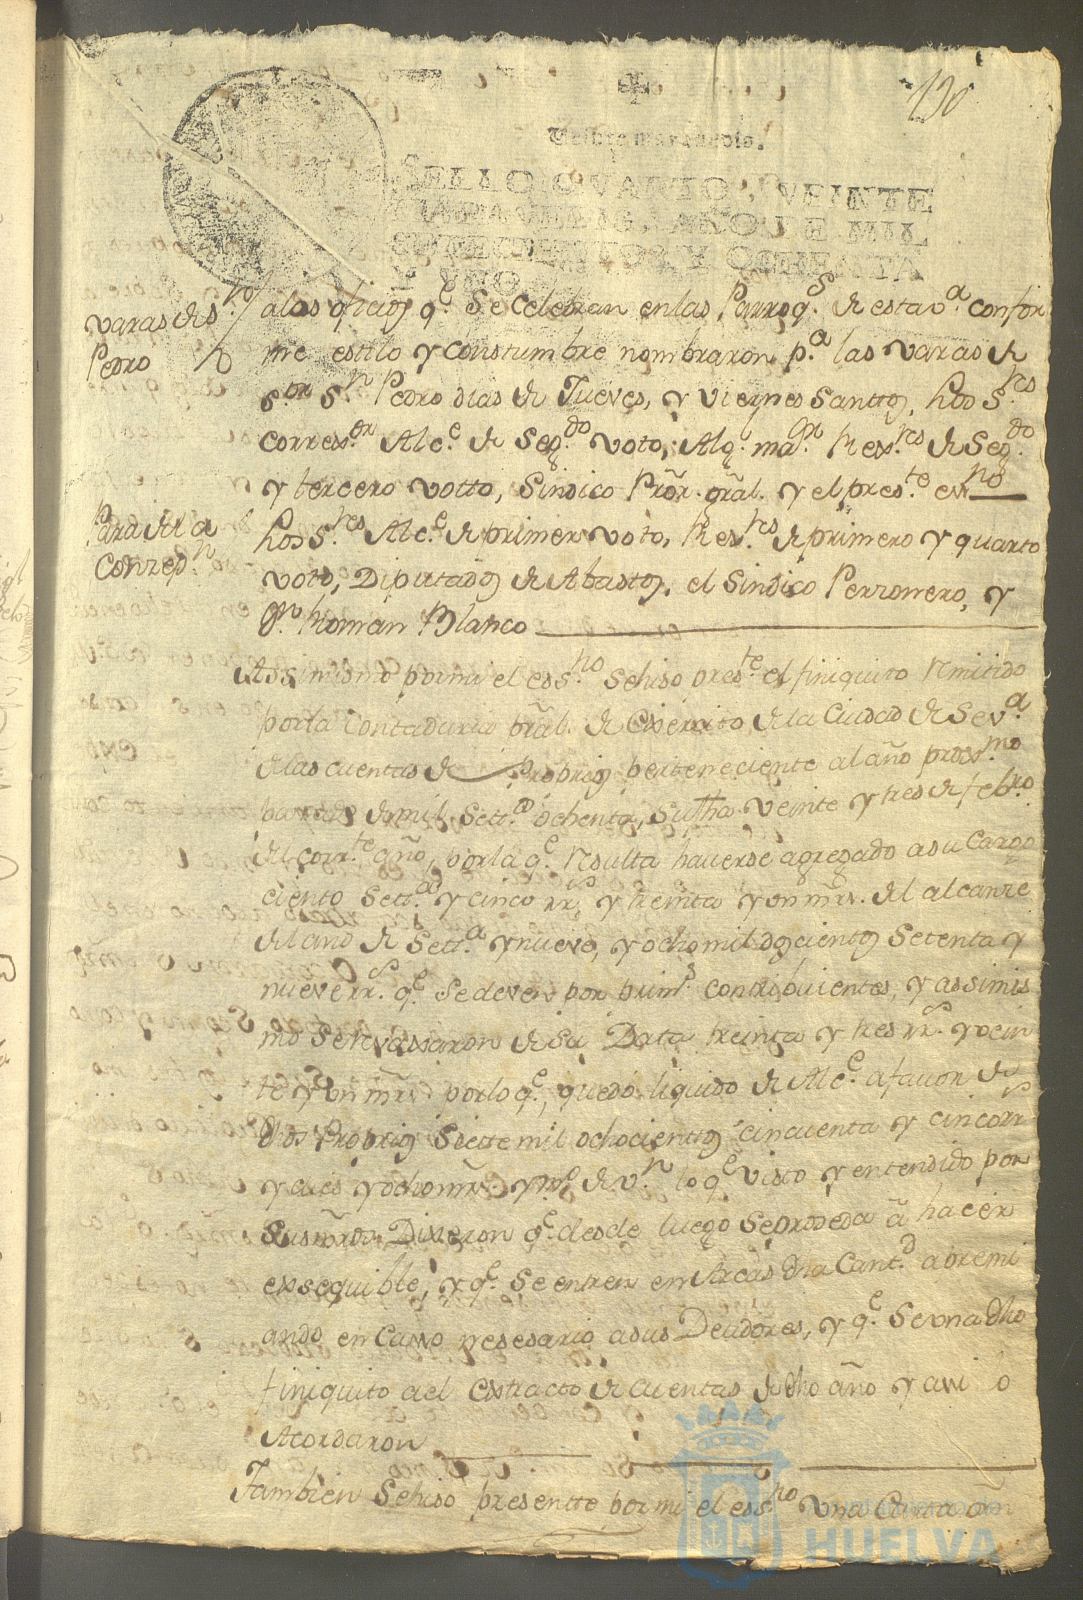 130
Veinte maravedis.
SELLO QVARTO, VEINTE
MARAVEDIS, AÑO DE MIL
SETECIENTOS Y OCHENTA
Y VNO.
varas de Sn.
Pedro
alos oficios qe. Se Celebran en las Parroqs. de esta va. confor
me estilo y Constumbre nombraron pa. las varas de
Sor. Sn. Pedro dias de Jueves, y Viernes Santtos, hos Sres.
Corresor. Alce. de Segdo. voto, Alg. mar. Rexres. de Segdo.
y tercero votto, Sindico Pror. gral. y el preste. esno.
Para de la
Conzepn.
hos Sres. Alce. de primer voto, Rexres. de primero y quarto
voto, Diputados de Abastos, el Sindico Perzonero, y
Dn. Román Blanco
Assimismo por mi el essno. Sehiso preste. el finiquito Remitido
por la Contaduria pral. de Exercito de la Ciudad de Seva.
de las cuentas de Proprios perteneciente al año proxmo.
pasado de mil Settos. ochenta, Su fha veinte y tres de febro.
del corrte. año, por la qe. Resulta haverse agregado a su Cargo
ciento Setta. y cinco rrs. y treinta y un mrs. del alcanze
del año de Setta. y nueve, y ocho mil doscientos Setenta y
nueve rrs. qe. Se deven por prims. contribuientes, y assimis
mo Se revaxaron de Su Data treinta y tres rrs. y vein
te y un mrs. por lo qe. quedó liquido de Alce. a favor de
dhos Proprios Siette mil ochocienttos cincuenta y cinco rrs
y dies y ocho mrs. y ms. de vn. lo qe. visto y entendido por
Sus mrds. Dixeron qe. desde luego Seproceda â hacer
exsequible, y qe. Se entren en Arcas dha Cantd. apremi
ando en Casso nesesario asus Deudores, y qe. Se una dho
finiquito a el Extracto de cuentas de dho año y assi lo
Acordaron
Tambien Sehiso presentte por mi el essno. una Carta or
HUELVA